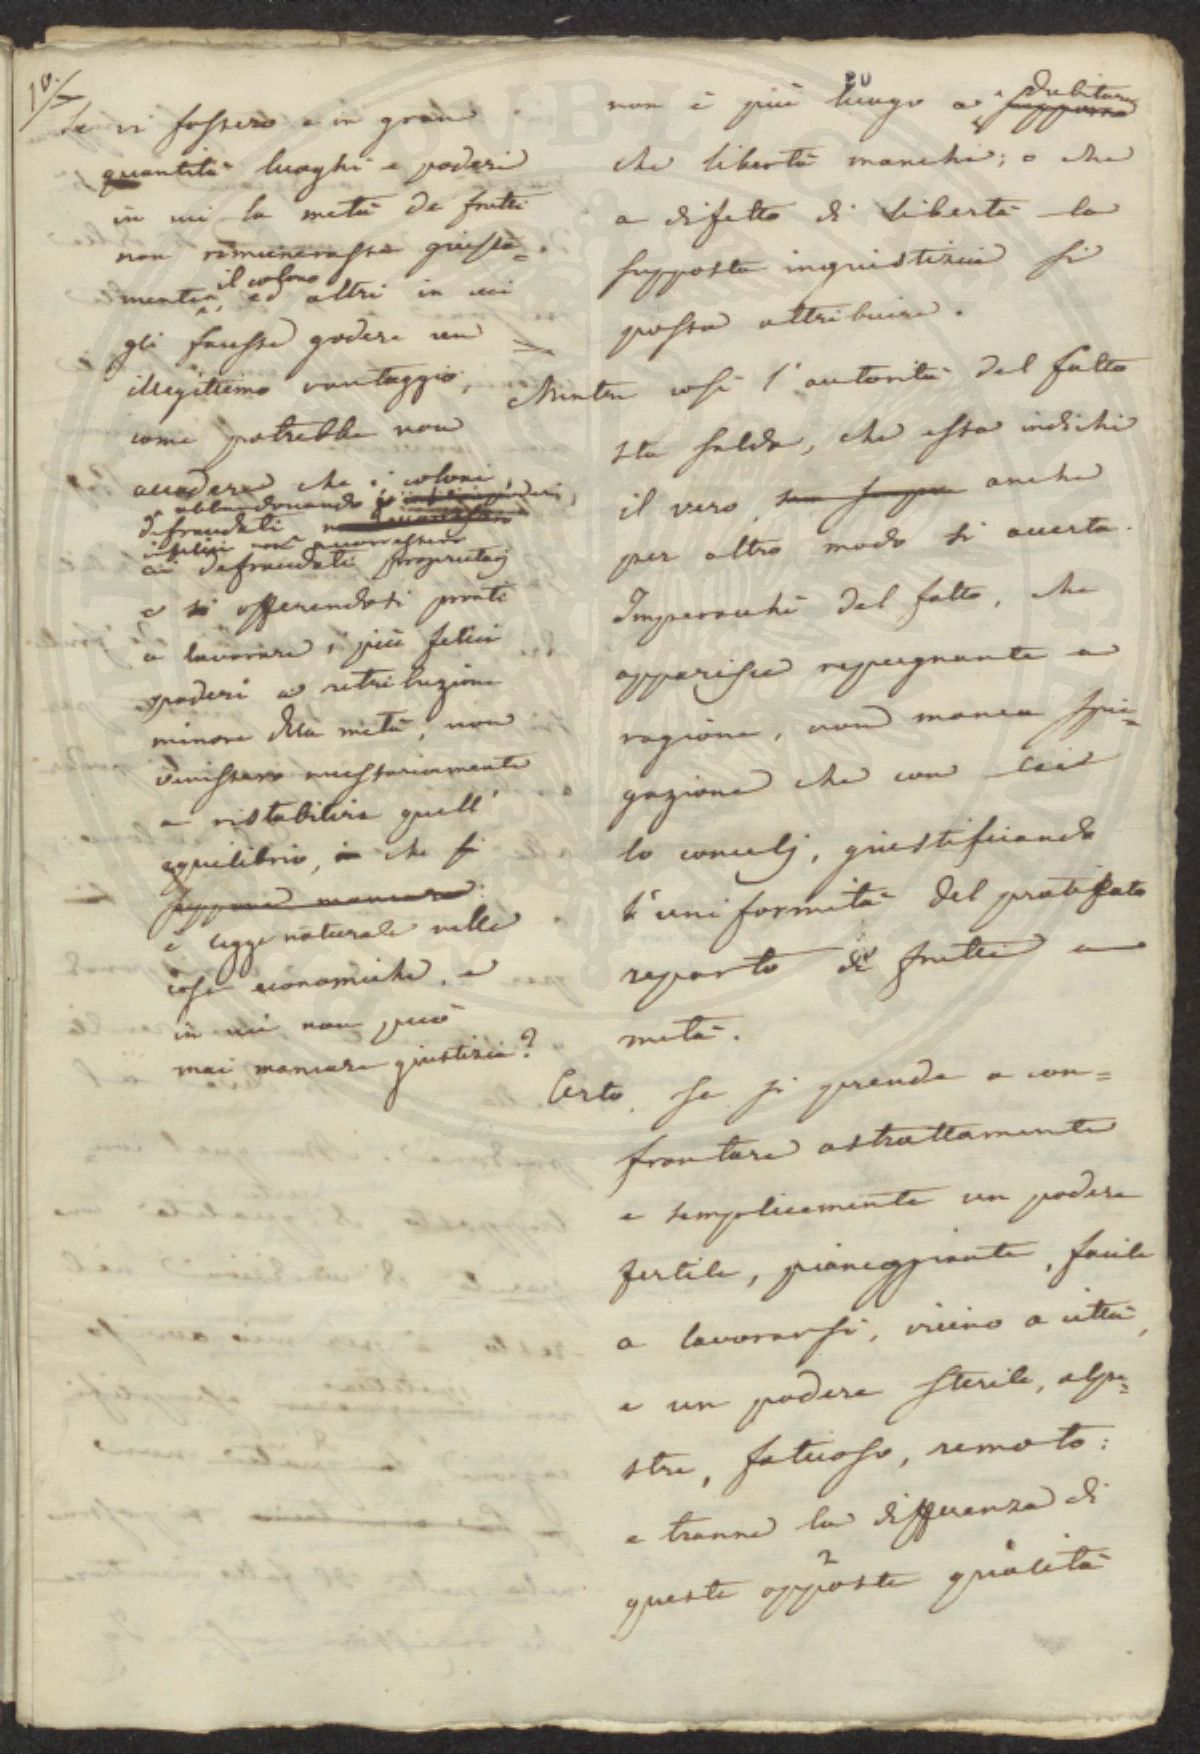 10.
Se vi fossero e in gran
quantità luoghi e poderi
in cui la metà de frutti
non rimunerasse giusta=
mente il colono
ed altri in cui
gli facesse godere un
illegittimo vantaggio,
come potrebbe non
accadere che i coloni
defraudati abbandonando i
infelici
defraudati proprietarj
e offerendosi pronti
a lavorare i più felici
poderi a retribuzione
minore della metà, non
venissero necessariamente
a ristabilire quell'
equilibrio, che si
suppone mancare
è legge naturale nelle
cose economiche, e
in cui non può
mai mancare giustizia?
20
non è più luogo a dubitare
supporre
che libertà manchi; o che
a difetto di libertà la
supposta ingiustizia si
possa attribuire.
Mentre così l'autorità del fatto
sta salda, che essa indichi
il vero anche
per altro modo si accerta.
Imperocchè del fatto, che
apparisce repugnante a
ragione, non manca spie=
gazione che con lei
lo concilj, giustificando
l'uniformità del praticato
reparto di frutti a
metà.
Certo, se si prende a con=
frontare astrattamente
e semplicemente un podere
fertile, pianeggiante, facile
a lavorarsi, vicino a città,
e un podere sterile, alpe=
stre, faticoso, remoto:
e tranne la differenza di
queste opposte qualità